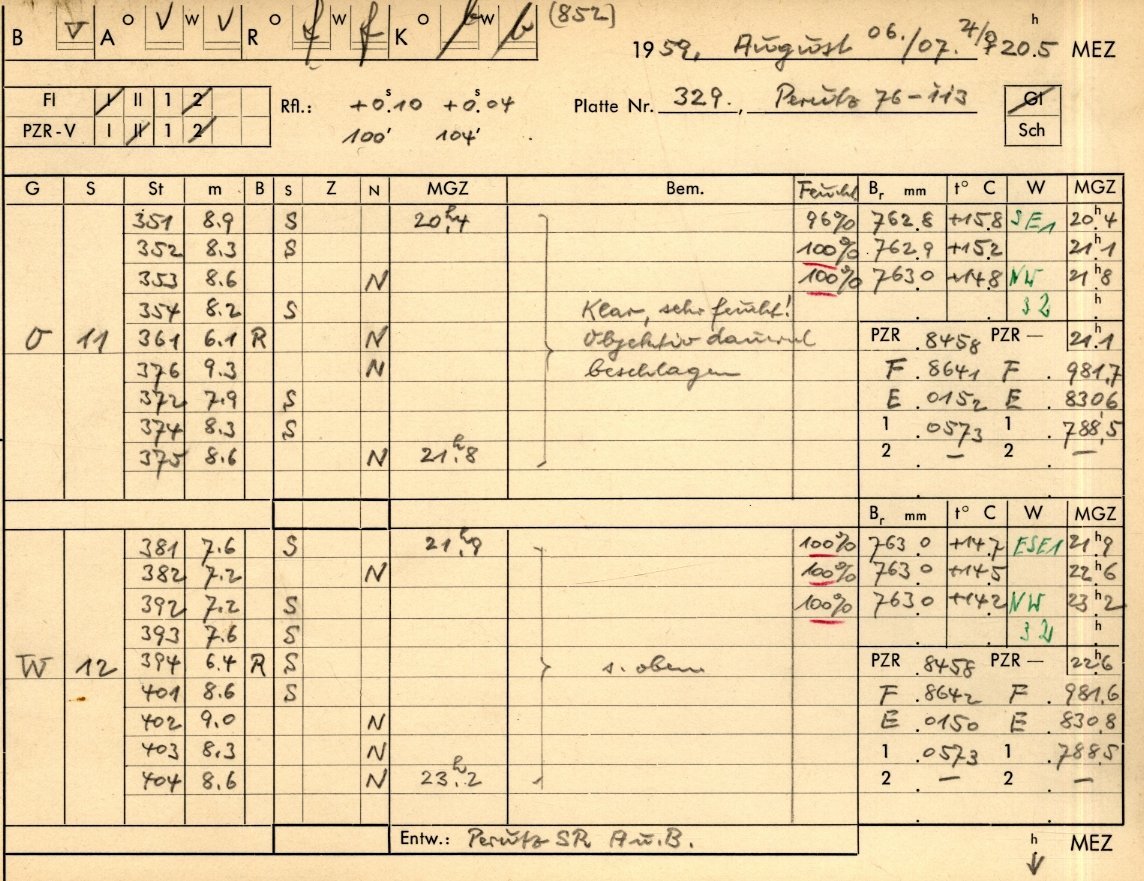 B V A O V W V R O f W f K O b W b (852)
1959, August 06./07. 20.5 h MEZ
Fl I II 1 2 Rfl.: +0.s10 +0.s04 Platte Nr. 329., Perutz 76-113 Gl
PZR-V I II 1 2 100' 104' Sch
G S St m B S Z N MGZ Bem. Feucht Br mm t° C W MGZ
351 8.9 S 20h.4 96% 762.8 +15.8 SE1 20h.4
352 8.3 S 100% 762.9 +15.2 21h.1
353 8.6 N 100% 763.0 +14.8 NW 21h.8
354 8.2 S Klar, sehr feucht! 32 h
O 11 361 6.1 R N Objektiv dauernd PZR .8458 PZR — 21h.1
376 9.3 N beschlagen F .8641 F . 981,7
372 7.9 S E .0152 E . 830.6
374 8.3 S 1 .0573 1 . 788,5
375 8.6 N 21h.8 2 . — 2 . —
Br mm t° C W MGZ
381 7.6 S 21h.9 100% 763.0 +14.7 ESE1 21h.9
382 7.2 N 100% 763.0 +14.5 22h.6
392 7.2 S 100% 763.0 +14.2 NW 23h.2
393 7.6 S 32 h
W 12 394 6.4 R S s. oben PZR .8458 PZR — 22h.6
401 8.6 S F .8642 F . 981,6
402 9.0 N E .0150 E . 830,8
403 8.3 N 1 .0573 1 . 788.5
404 8.6 N 23h.2 2 . — 2 . —
Entw.: Perutz SR A u. B. h MEZ